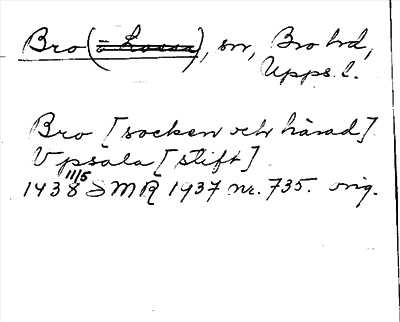 Bro (= Lossa), sn, Bro hd,
Upps. l.
Bro [socken och härad]
Upsala [stift]
1438 11/5 SMR 1937 nr. 735. orig.